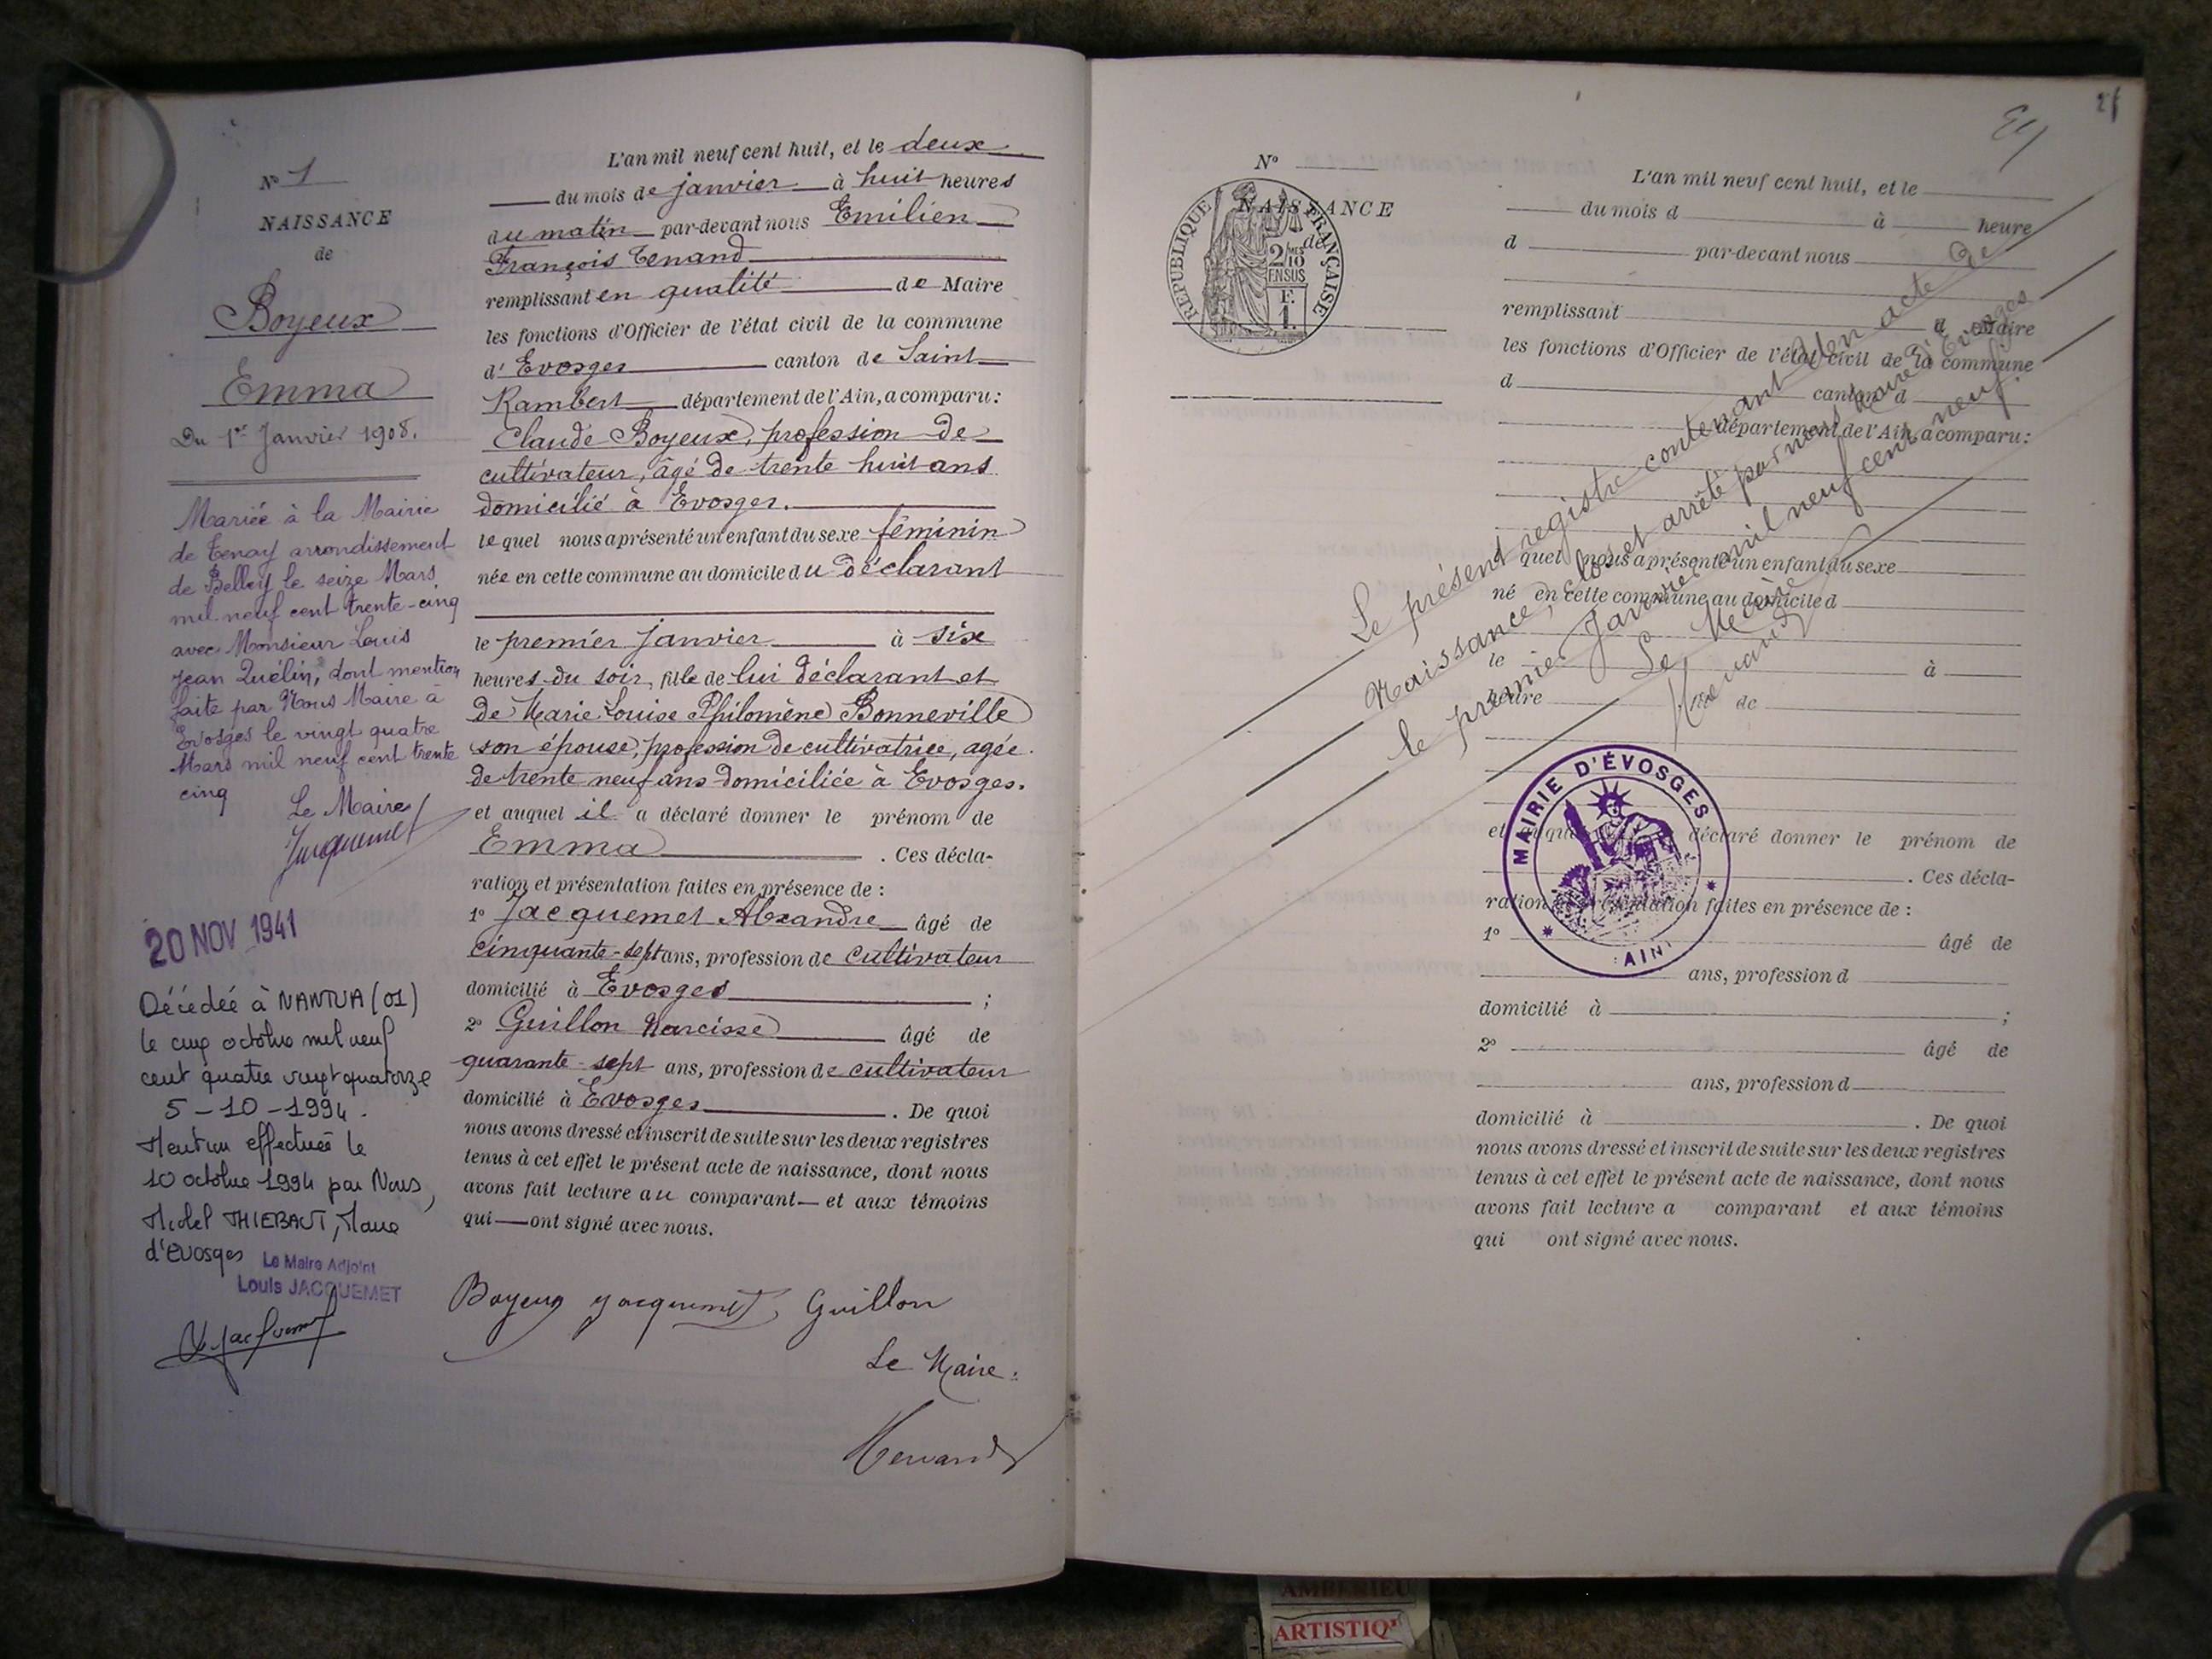 N° 1
NAISSANCE
de
Boyeux
Emma
Du 1er Janvier 1908.
Mariée à la Mairie
de Tenay arrondissement
de Belley le seize Mars
mil neuf cent trente-cinq
avec Monsieur Louis
Jean Quélin, dont mention
faite par Nous Maire à
Evosges le vingt quatre
Mars mil neuf cent trente
cinq
Le Maire
Jacquemet
20 NOV 1941
Décédée à NANTUA (01)
le cinq octobre mil neuf
cent quatre vingt quatorze
5-10-1994.
Mention effectuée le
10 octobre 1994 par Nous,
Michel THIEBAUT, Maire
d'Evosges
Le Maire Adjoint
Louis JACQUEMET
L'an mil neuf cent huit, et le deux
du mois de janvier à huit heures
du matin par-devant nous Emilien
François Tenand
remplissant en qualité de Maire
les fonctions d'Officier de l'état civil de la commune
d'Evosges canton de Saint
Rambert département de l'Ain, a comparu:
Claude Boyeux, profession de
cultivateur, âgé de trente huit ans
domicilié à Evosges.
le quel nous a présenté un enfant du sexe féminin
née en cette commune au domicile du déclarant
le premier janvier à six
heures du soir, fille de lui déclarant et
de Marie Louise Philomène Bonneville
son épouse, profession de cultivatrice, agée
de trente neuf ans domiciliée à Evosges.
et auquel il a déclaré donner le prénom de
Emma . Ces décla-
ration et présentation faites en présence de :
1° Jacquemet Alexandre âgé de
cinquante-sept ans, profession de cultivateur
domicilié à Evosges ;
2° Guillon Narcisse âgé de
quarante-sept ans, profession de cultivateur
domicilié à Evosges . De quoi
nous avons dressé et inscrit de suite sur les deux registres
tenus à cet effet le présent acte de naissance, dont nous
avons fait lecture au comparant et aux témoins
qui ont signé avec nous.
Boyeux Jacquemet Guillon
Le Maire :
Tenand
N°
NAISSANCE
de
RÉPUBLIQUE FRANÇAISE
2/10
EN SUS
F.
1.
L'an mil neuf cent huit, et le
du mois d à heure
d par-devant nous
remplissant d Maire
les fonctions d'Officier de l'état civil de la commune
d canton d
département de l'Ain, a comparu:
quel nous a présenté un enfant du sexe
né en cette commune au domicile d
le à
heure fil de
et auquel a déclaré donner le prénom de
. Ces décla-
ration et présentation faites en présence de :
1° âgé de
ans, profession d
domicilié à ;
2° âgé de
ans, profession d
domicilié à . De quoi
nous avons dressé et inscrit de suite sur les deux registres
tenus à cet effet le présent acte de naissance, dont nous
avons fait lecture a comparant et aux témoins
qui ont signé avec nous.
Le présent registre contenant un acte de
Naissance, clos et arrêté par nous Maire d'Evosges
le premier Janvier mil neuf cent neuf.
Le Maire
Tenand
MAIRIE D'ÉVOSGES
AIN
AMBERIEU
ARTISTIQ